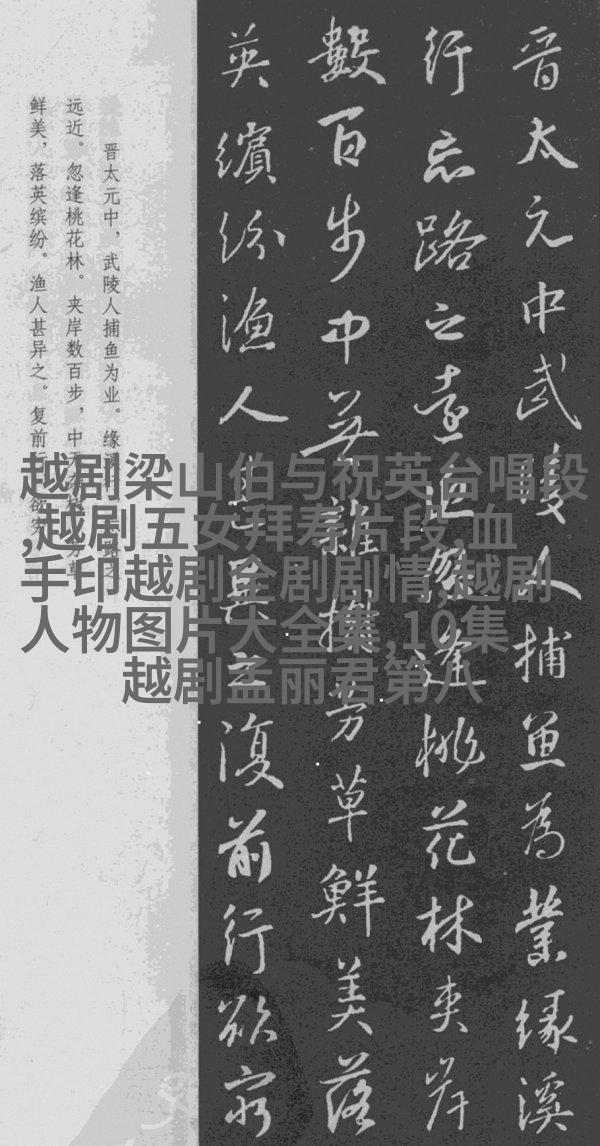 晉太元中武陵人捕魚為業緣溪
行忘路之遠近忽逢桃花林夾岸
數百步中無雜樹芳草鮮美落
英繽紛漁人甚異之復前行欲窮
晋太元中，武陵人捕鱼为业。缘
远近。忽逢桃花林。夹岸数百步，中
鲜美，落英缤纷。渔人甚异之。复前
越剧梁山伯与祝英台唱段
,越剧五女拜寿片段,血
手印越剧全剧剧情,越剧
人物图片大全集,10集
越剧孟丽君第八